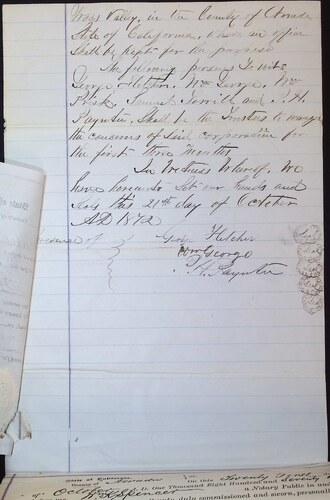 Grass Valley, in the County of Nevada
State of California, where an office
Shall be kept for the purpose
The following persons To wit:
George Fletcher. Wm George. Wm
Kirk. Samuel and P. H.
Paynter. Shall be the Trustees to manage
the concerns of Said corporation for
the first three Months
In Witness Whereof, We
have hereunto Set our hands and
seals this 21st day of October
AD 1872
Presence of
Geo Fletcher
Wm George
P. H. Paynter
State of
State of California,
County of Nevada
On this Twenty first
of October A. D. One Thousand Eight Hundred and Seventy
Spencer a Notary Public in
duly commissioned and sworn,